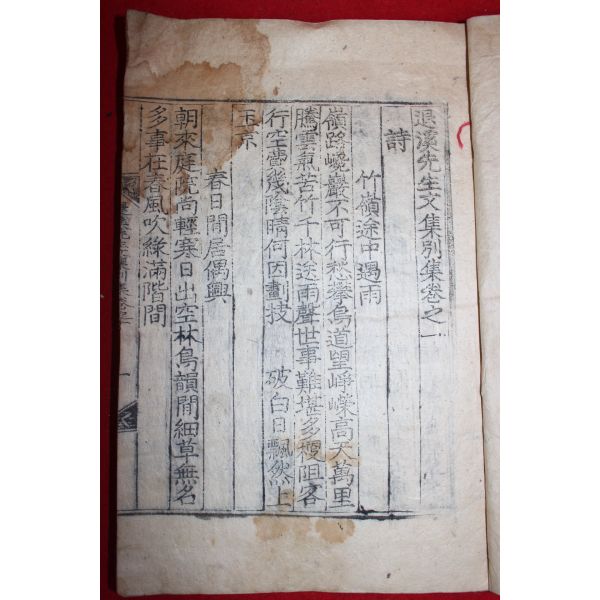 退溪先生文集別集卷之一
詩
竹嶺途中遇雨
嶺路巉巖不可行愁攀鳥道望崢嶸高天萬里
騰雲氣苦竹千林送雨聲世事難堪多梗阻客
行空當幾陰晴何因劃 破白日飄然上
玉京
春日閒居偶興
朝來庭院尚輕寒日出空林鳥韻閒細草無名
多事在春風吹綠滿階間